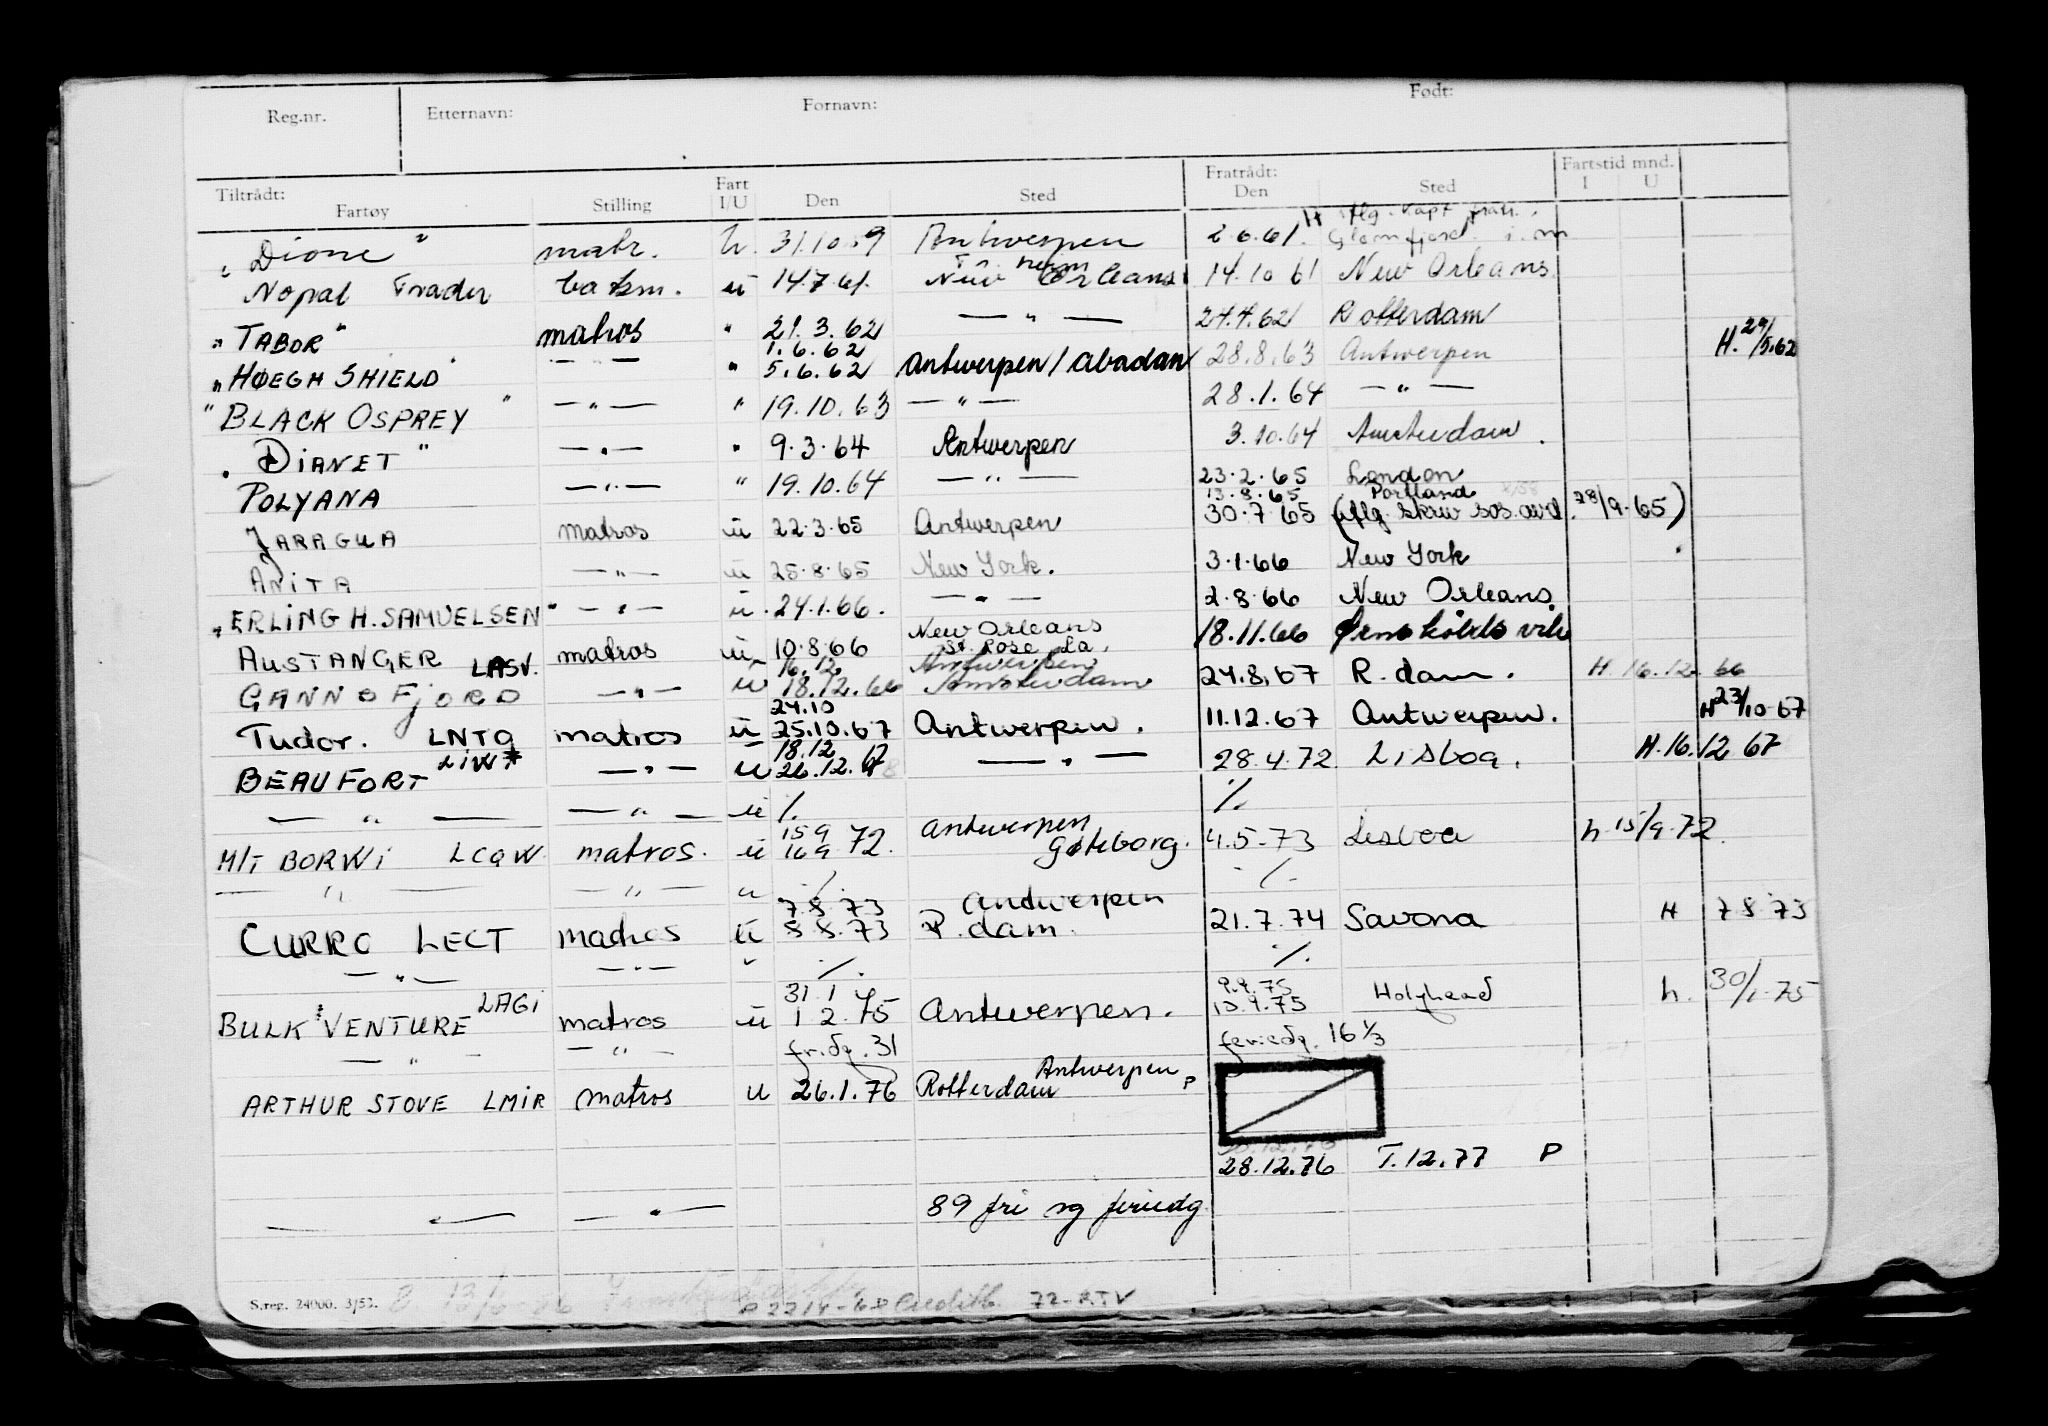 Reg.nr. Etternavn: Fornavn: Født:
Tiltrådt: Fartøy Stilling Fart I/U Den Sted Fratrådt: Den Sted Fartstid mnd. I U
"Dione" matr. u. 31.10.59 Antwerpen 2.6.61. H
Nopal Trader båtsm. ü 14.7.61. New Orleans 14.10 61 New Orleans.
"TABOR" matros " 21.3.62 — " — 24.4.62 Rotterdam
1.6.62 H. 29/5.62
"HØEGH SHIELD" — " — " 5.6.62 Antwerpen / Abadan 28.8.63 Antwerpen
"BLACK OSPREY" — " — " 19.10.63 — " — 28.1.64 — " —
"DIANET" — " — " 9.3.64 Antwerpen 3.10.64 Amsterdam.
POLYANA — " — " 19.10.64 — " — 23.2.65 London
13.8.65 Portland
JARAGUA matros ü 22.3.65 Antwerpen 30.7.65 (iflg. skriv sos. avd. 28/9.65)
ANITA — " — ü 25.8.65 New York. 3.1.66 New York
"ERLING H. SAMUELSEN" — " — ü. 24.1.66. — " — 2.8.66 New Orleans.
New Orleans
AUSTANGER LASV. matros ü 10.8.66 St. Rose La. 18.11.66 Ørnskölds vik
16.12 Antwerpen
GANNOFJORD — " — ü 18.12.66 Amsterdam 24.8.67 R.dam. H. 16.12.66
24.10
Tudor. LNTQ matros ü 25.10.67 Antwerpen. 11.12.67 Antwerpen. H 23/10-67
18.12
BEAUFORT LIW* — " — ü 26.12.67 — " — 28.4.72 Lisboa. H.16.12 67
— " — — " — ü ·/. ·/.
15 9 Antwerpen
M/T BORWI LCQW matros. ü 16 9 72. Gøteborg. 4.5-73 Lisboa h.15/9.72.
— " — — " — " ·/. ·/.
7.8.73 Antwerpen
CURRO LECT matros ü 8.8.73 R.dam. 21.7.74 Savona H 7 8 73
— " — — " — " ·/. ·/.
31.1 9.9.75
BULK VENTURE LAGI matros ü 1 2.75 Antwerpen. 10.9.75 Holyhead h. 30/1-75
— " — — " — fr.dg. 31 feriedg. 16 1/3
Antwerpen P
ARTHUR STOVE LMIR matros u 26.1.76 Rotterdam
28.12.76 T.12.77 P
— " — — " — 89 fri og feriedg
S.reg. 24000. 3/52. 72-RTV